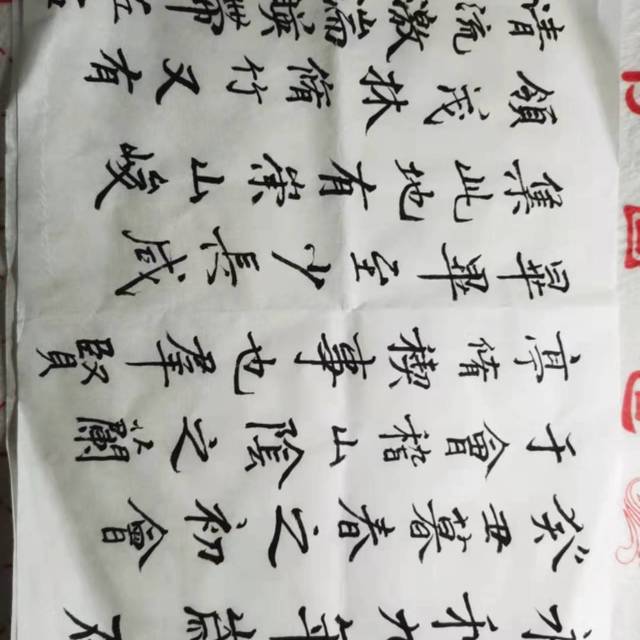 永和九年歲在
癸丑暮春之初會
于會稽山陰之蘭
亭脩禊事也羣賢
畢至少長咸
集此地有崇山峻
領茂林脩竹又有
清流激湍暎帶左